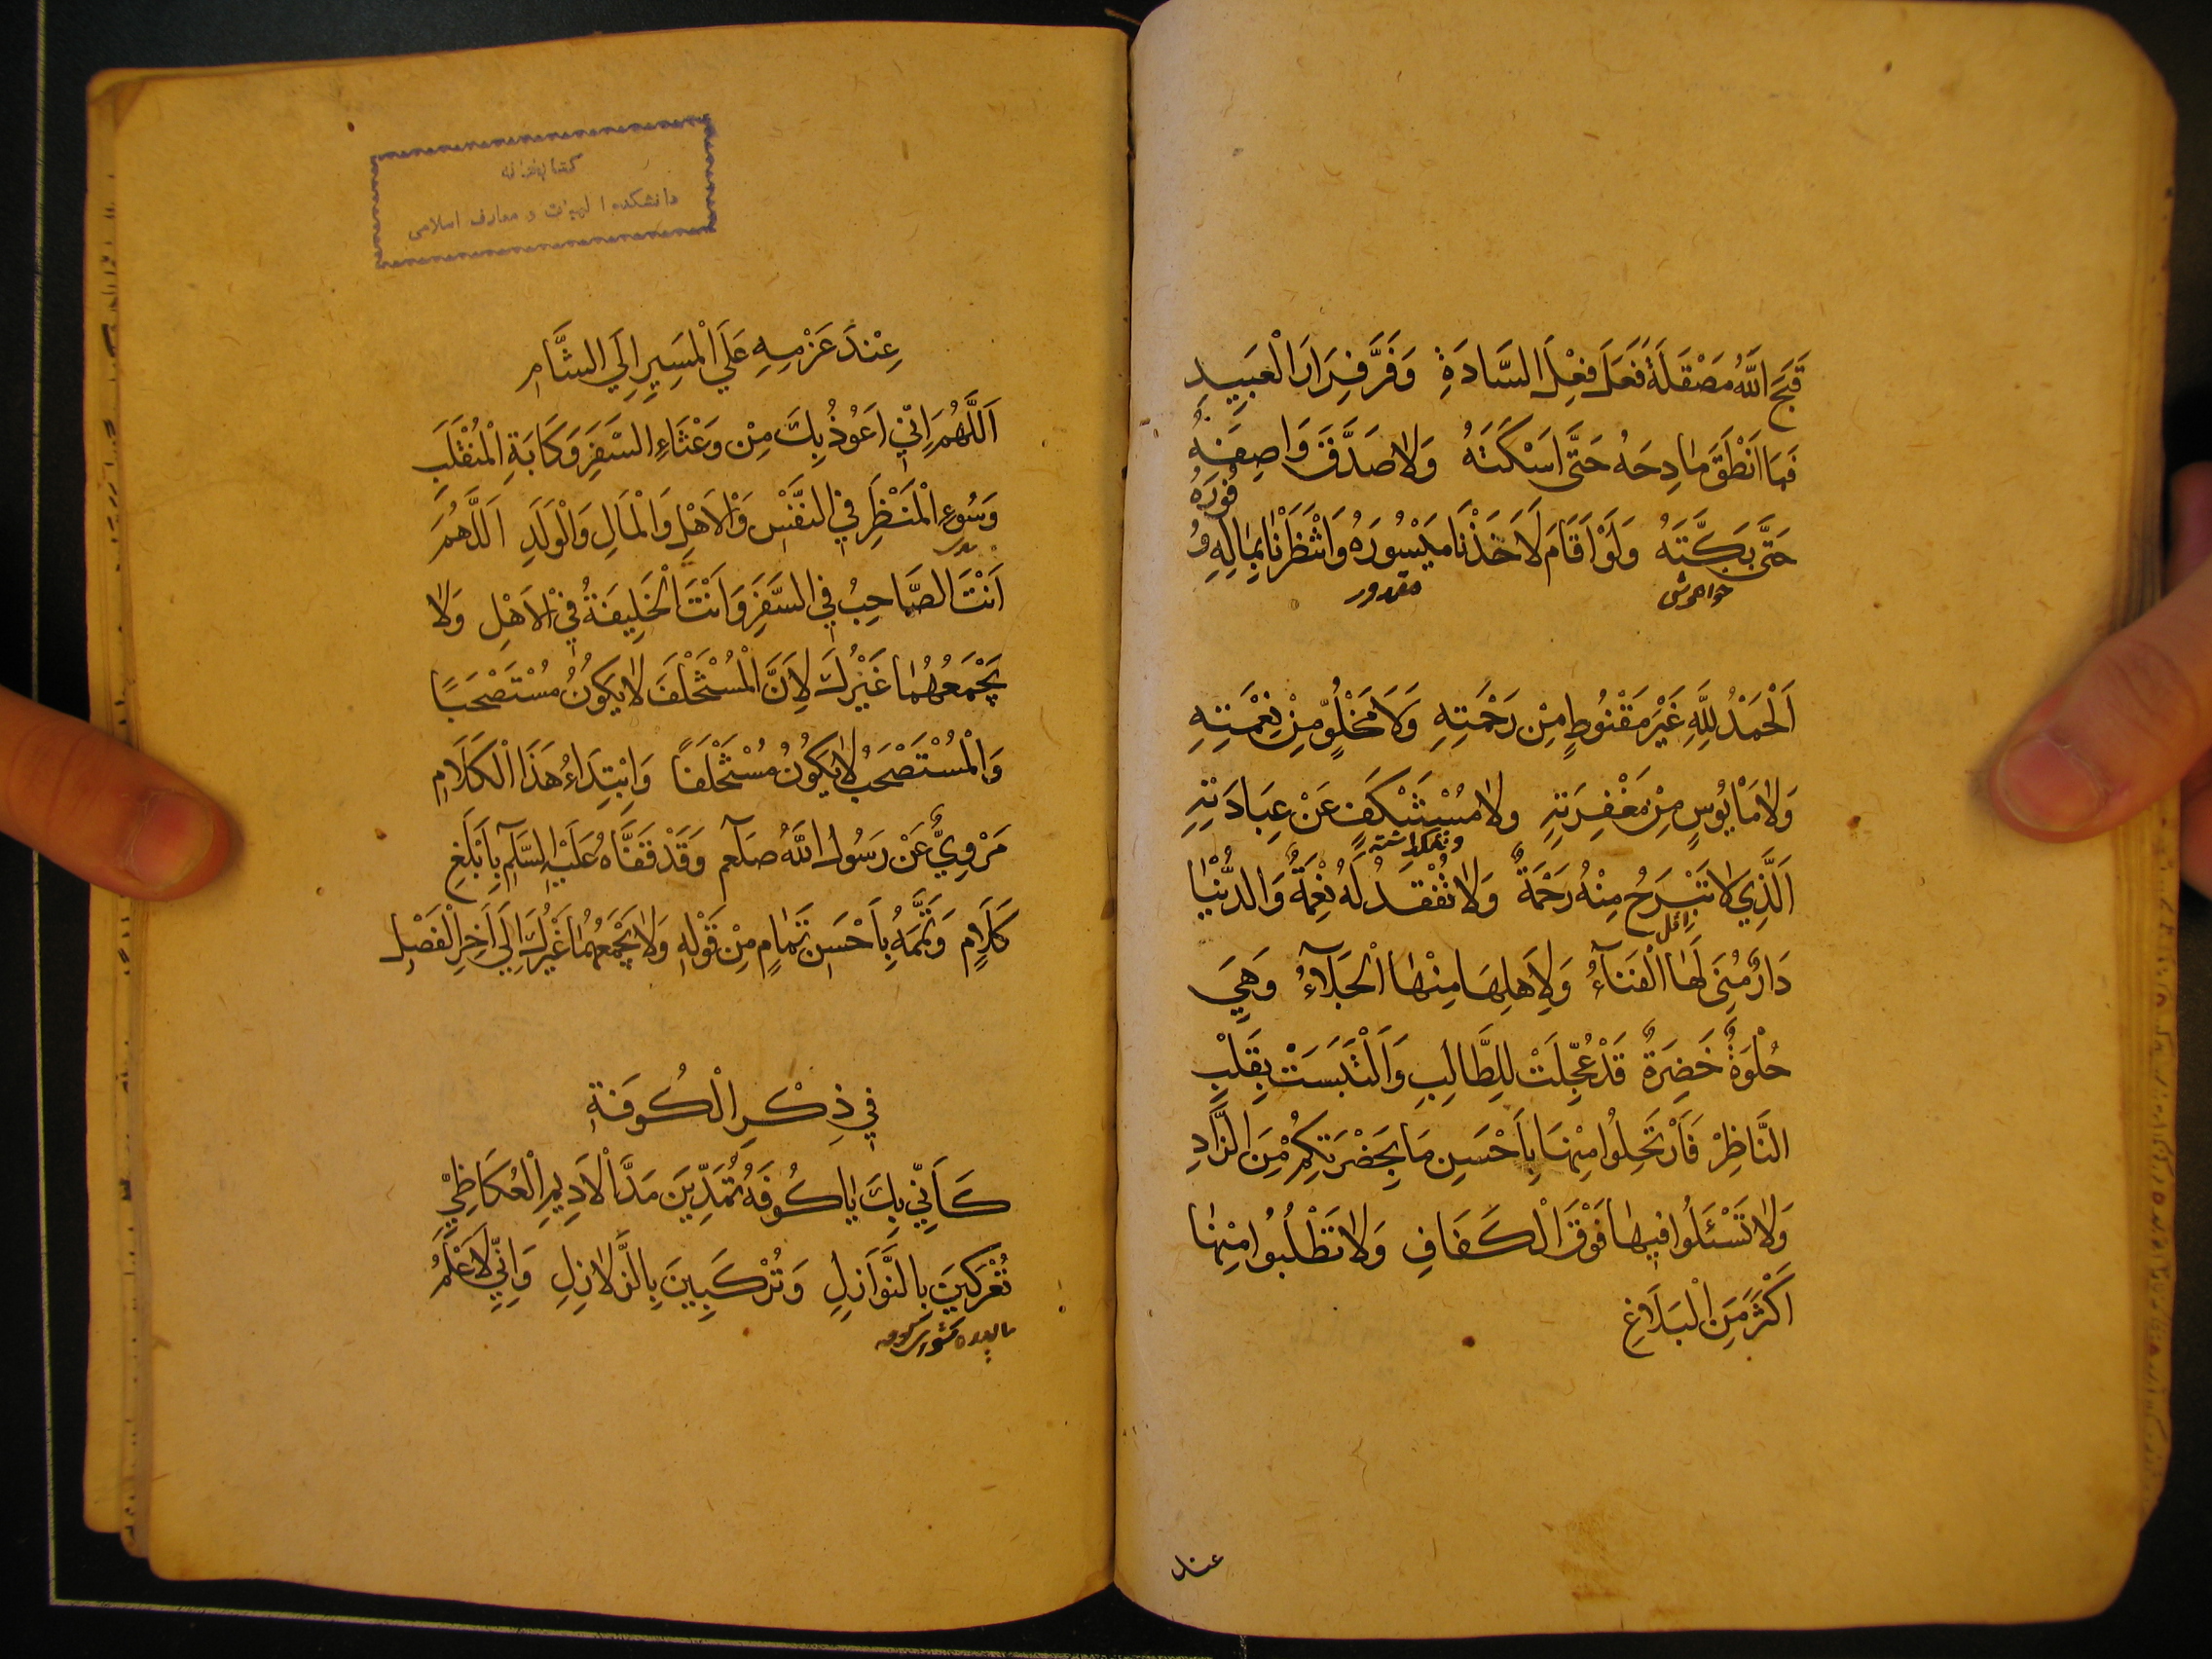 قَبَحَ اللّٰهُ مَصْقَلَةَ فَعَلَ فِعْلَ السَّادَةِ وَفَرَّ فِرَارَ الْعَبِيدِ
فَمَا اَنْطَقَ مَادِحَهُ حَتَّى اَسْكَتَهُ وَلَا صَدَّقَ وَاصِفَهُ
حَتَّى بَكَّتَهُ وَلَوْ اَقَامَ لَاَخَذْنَا مَيْسُورَهُ وَانْتَظَرْنَا بِمَالِهِ وُفُورَهُ
مقدور
اَلْحَمْدُ لِلّٰهِ غَيْرَ مَقْنُوطٍ مِنْ رَحْمَتِهِ وَلَا مَخْلُوٍّ مِنْ نِعْمَتِهِ
وَلَا مَاْيُوسٍ مِنْ مَغْفِرَتِهِ وَلَا مُسْتَنْكَفٍ عَنْ عِبَادَتِهِ
اَلَّذِي لَا تَبْرَحُ مِنْهُ رَحْمَةٌ وَلَا تُفْقَدُ لَهُ نِعْمَةٌ وَالدُّنْيَا
زائل
دَارٌ مُنِيَ لَهَا الْفَنَآءُ وَلِاَهْلِهَا مِنْهَا الْجَلَآءُ وَهِيَ
حُلْوَةٌ خَضِرَةٌ قَدْ عُجِّلَتْ لِلطَّالِبِ وَالْتَبَسَتْ بِقَلْبِ
النَّاظِرِ فَارْتَحِلُوا مِنْهَا بِاَحْسَنِ مَا بِحَضْرَتِكُمْ مِنَ الزَّادِ
وَلَا تَسْئَلُوا فِيهَا فَوْقَ الْكَفَافِ وَلَا تَطْلُبُوا مِنْهَا
اَكْثَرَ مِنَ الْبَلَاغِ
عند
كتابخانه
دانشكده الهيات و معارف اسلامى
عِنْدَ عَزْمِهِ عَلَي الْمَسِيرِ اِلَي الشَّامِ
اَللّٰهُمَّ اِنِّي اَعُوذُ بِكَ مِنْ وَعْثَاءِ السَّفَرِ وَكَابَةِ الْمُنْقَلَبِ
وَسُوءِ الْمَنْظَرِ فِي النَّفْسِ وَالْاَهْلِ وَالْمَالِ وَالْوَلَدِ اَللّٰهُمَّ
اَنْتَ الصَّاحِبُ فِي السَّفَرِ وَاَنْتَ الْخَلِيفَةُ فِي الْاَهْلِ وَلَا
يَجْمَعُهُمَا غَيْرُكَ لِاَنَّ الْمُسْتَخْلَفَ لَا يَكُونُ مُسْتَصْحَبًا
وَالْمُسْتَصْحَبُ لَا يَكُونُ مُسْتَخْلَفًا وَابْتِدَاءُ هَذَا الْكَلَامِ
مَرْوِيٌّ عَنْ رَسُولِ اللّٰهِ صلعم وَقَدْ قَفَّاهُ عَلَيْهِ السَّلَم بِاَبْلَغِ
كَلَامٍ وَتَمَّمَهُ بِاَحْسَنِ تَمَامٍ مِنْ قَوْلِهِ وَلَا يَجْمَعُهُمَا غَيْرُكَ اِلَي آخِرِ الْفَصْلِ
فِي ذِكْرِ الْكُوفَةِ
كَاَنِّي بِكِ يَا كُوفَةُ تُمَدِّينَ مَدَّ الْاَدِيمِ الْعُكَاظِيِّ
تُعْرَكِينَ بِالنَّوَازِلِ وَتُرْكَبِينَ بِالزَّلَازِلِ وَاِنِّي لَاَعْلَمُ